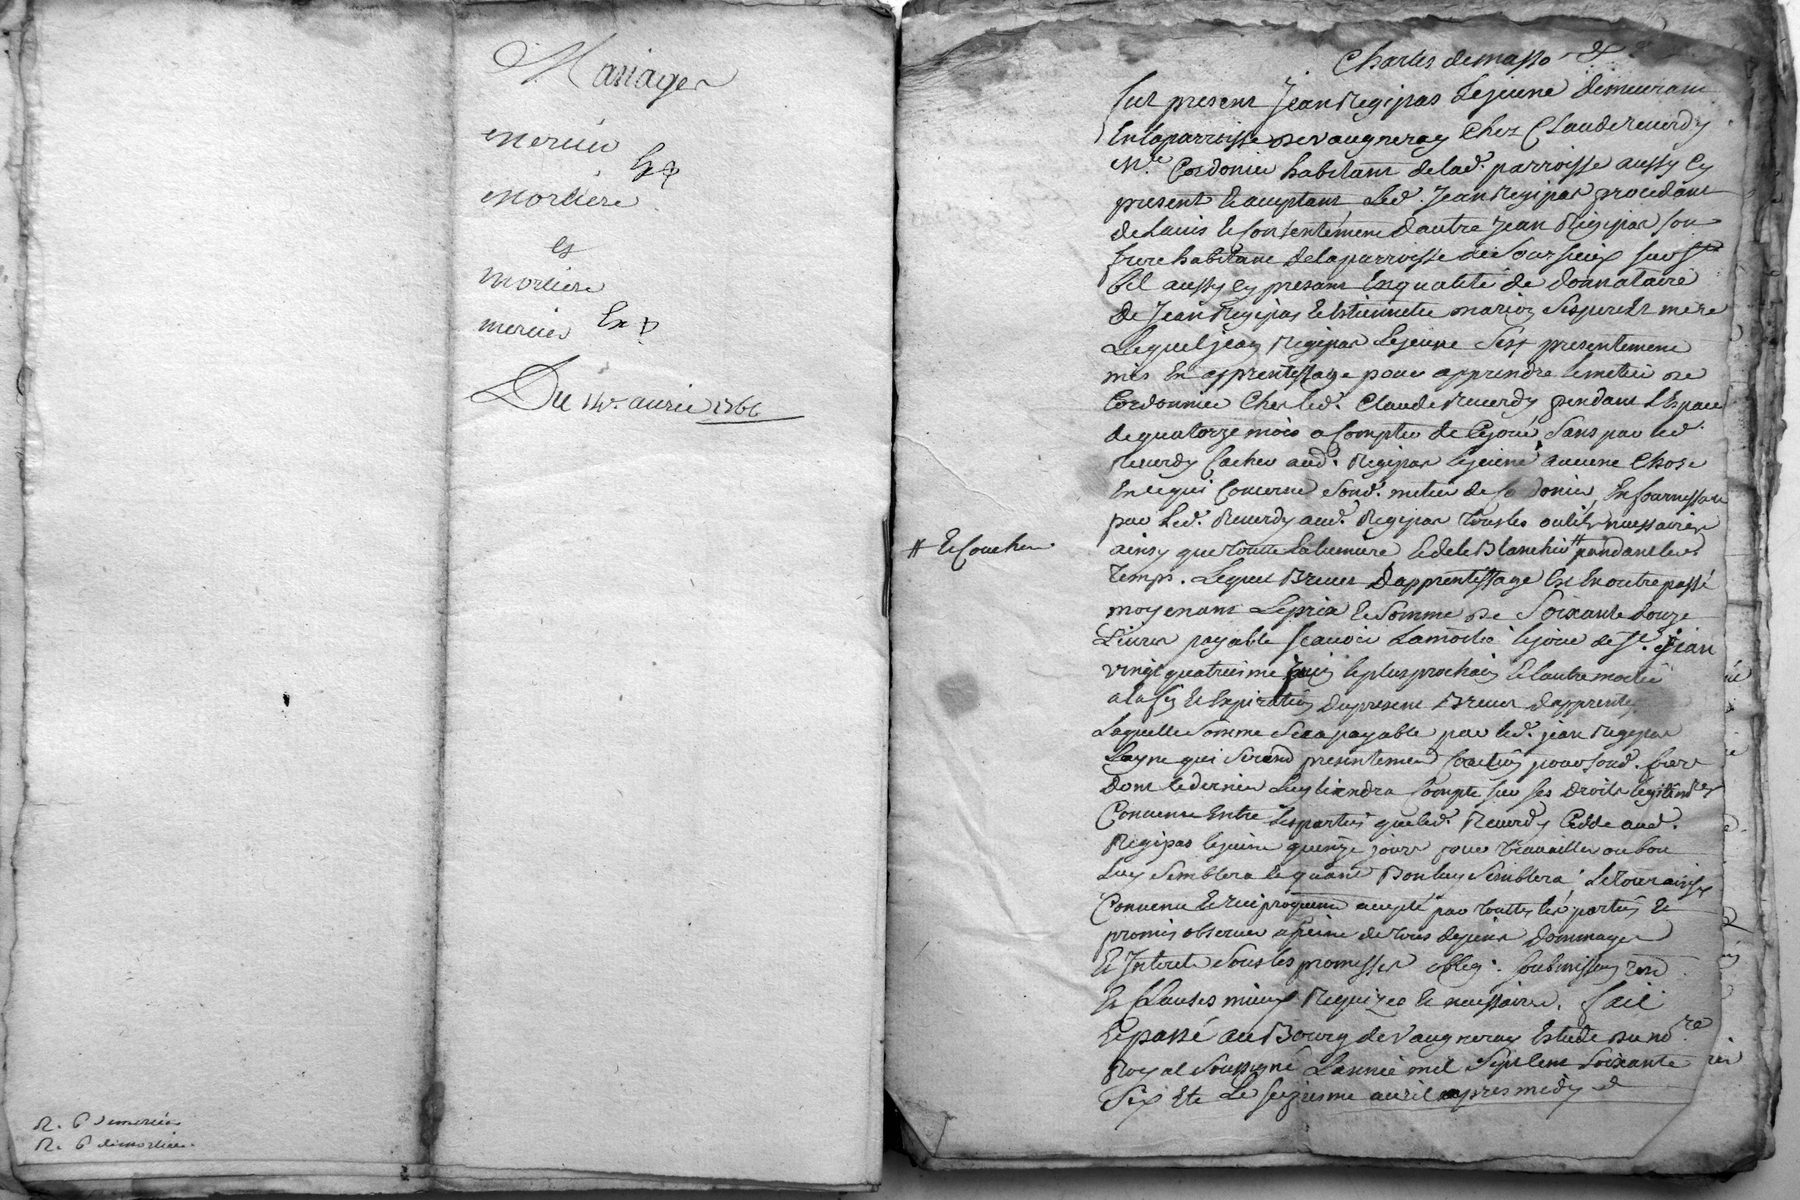 Mariages
mercier
Exp
morliere
et
morliere
mercier Exp
Du 14e. avril 1766
R. P demercier
R. P demorliere
Charles demasso &
fut present Jean Regipas Lejeune demeurant
En laparroisse de vaugneray chez Claude reverdy
Me. Cordonier habitant de lad. parroisse aussy Cy
present Et aceptant, Led. Jean Regipas procedant
de Lavis Et Consentement dautre Jean Regipas son
frere habitant delaparroisse de Soursieux
aussy Cy present Enqualité de donnataire
de Jean Regipas Et Estiennette marion Sespere Et mere
Lequel jean Regipas Lejeune Sest presentement
mis En apprentissage pour apprendre Lemetier de
Cordonnier Ches led. Claude Reverdy pendant LEspace
de quatorze mois a Compter de Cejour Sans par led.
Reverdy Cacher aud. Regipas lejeune aucune chose
En cequi Concerne Sond. metier de Cordonier, En fournissant
par Led. Reverdy aud. Regipas tous les outils necessaires
# Et Coucher
ainsy que toutte la lumiere Et de le Blanchir # pendant led.
temps. Lequel Brevet Dapprentissage Est En outre passé
moyenant Leprix Et Somme de Soixante douze
Livres payable scavoir Lamoitié lejour de St. Jean
vingt quatriesme juin leplus prochain Et lautre moitié
a la fin Et Expiration dupresent Brevet dapprentis
Laquelle Somme Sera payable par led. jean Regipas
Layne qui Serend presentement Caution pour Sond. frere
Dont Cedernier Luy tiendra Compte sur ses Droits legitimaires
Convenu Entre Lesparties queled. Reverdy Cedde aud.
Regipas lejeune quinze jours pour travailler ou bon
Luy Semblera Et quand Bon luy Semblera; Letout ainsy
Convenu Et reciproquement accepté par touttes les parties Et
promis observer apeine de tous depens dommages
Et Interets Sous les promesses oblig. Soubmissions ren
Et Clauses mieux Requizes Et necessaires. fait
Et passé au Bourg de Vaugneray Estude du nore
Royal Soussigné Lannée mil Sept Cent Soixante
Six Et Le seiziesme avril apres midy &